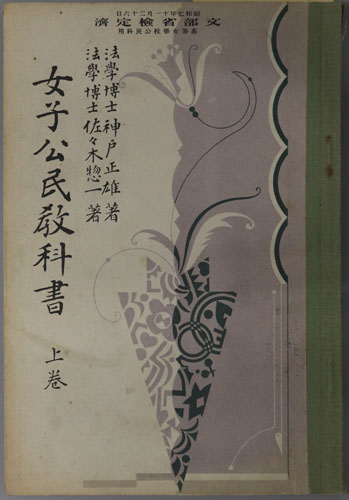 昭和七年十一月二十六日
文部省檢定濟
高等女學校公民科用
法學博士 神戸正雄 著
法學博士 佐々木惣一 著
女子公民教科書 上卷